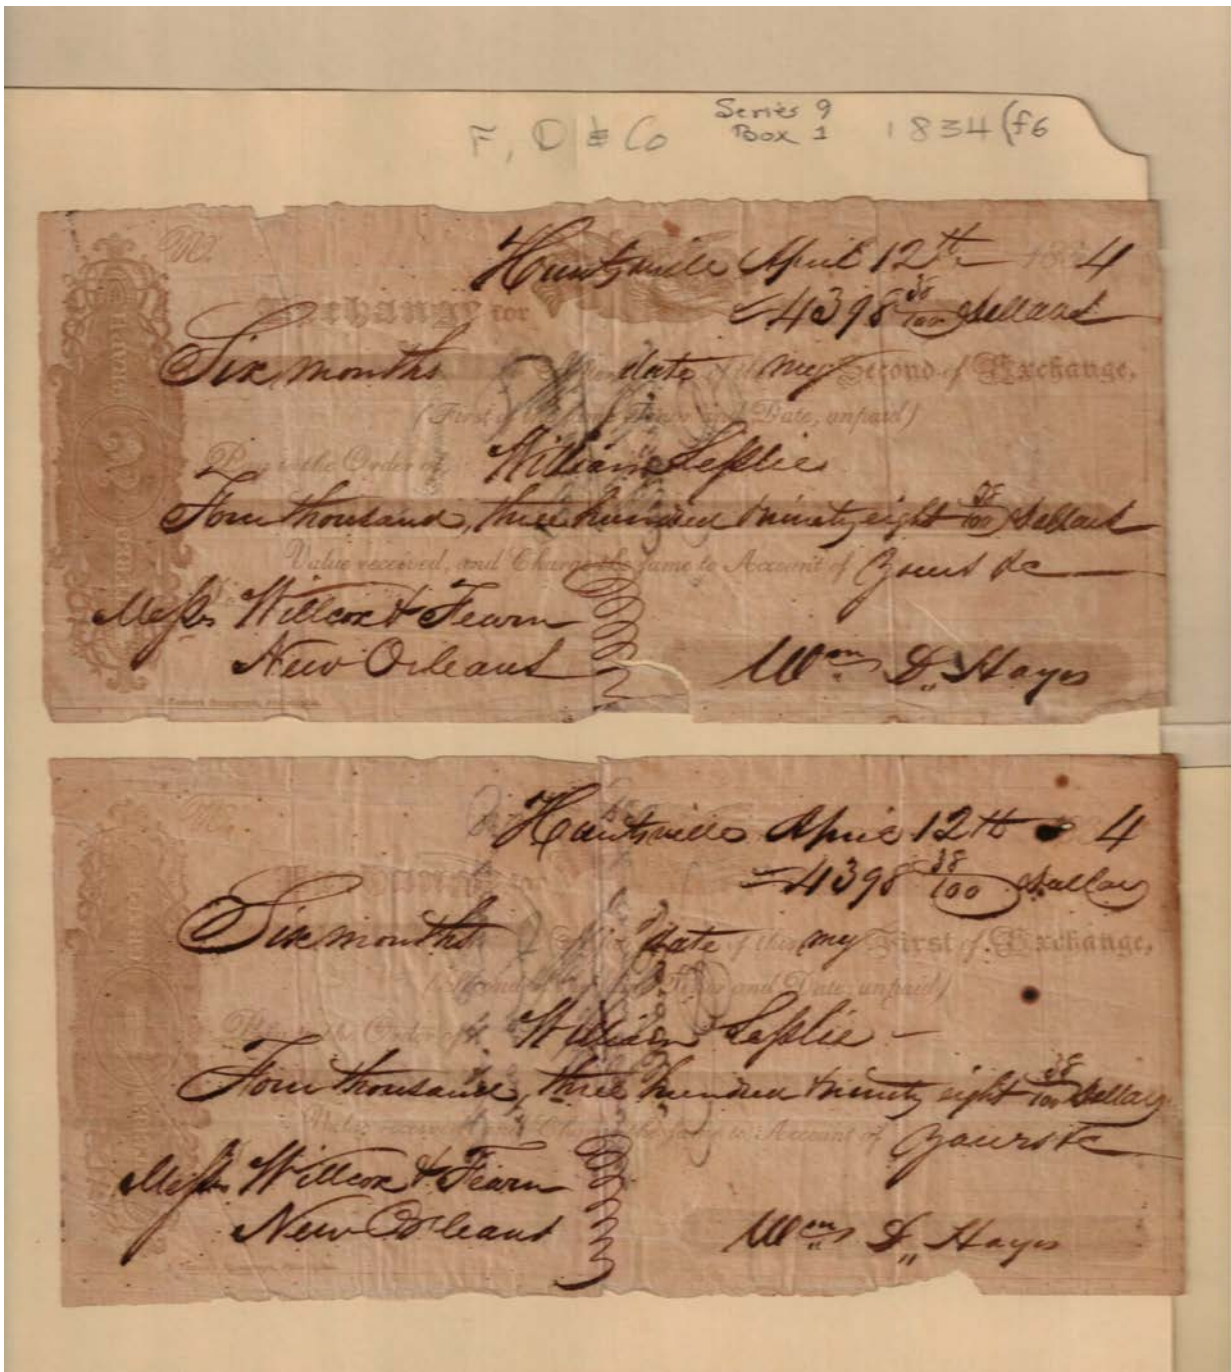 F, D & Co Series 9 Box 1 1834 (f6
No.
Huntsville April 12th 1834
Exchange for $4398 38/100 Dollars
Six months after date of this my Second of Exchange,
(First of the same Tenor and Date, unpaid)
Pay to the Order of William Leslie
Four thousand, three hundred & ninety eight 38/100 Dollars
Value received, and Charge the same to Account of Yours &c
Messrs Willcox & Fearn
New Orleans Wm D. Hayes
No.
Huntsville April 12th 4
Exchange =4398 38/100 Dollars
Six months after date of this my First of Exchange,
(Second of the same Tenor and Date, unpaid)
Pay to the Order of William Leslie
Four thousand, three hundred & ninety eight 38/100 Dollars
Value received and Charge the same to Account of Yours &c
Messrs Willcox & Fearn
New Orleans Wm D. Hayes